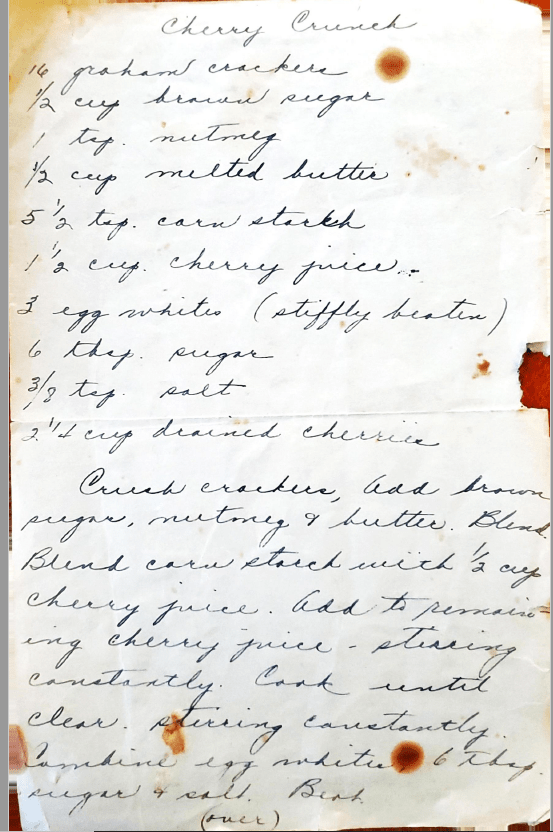 Cherry Crunch
16 graham crackers
1/2 cup brown sugar
1 tsp. nutmeg
1/2 cup melted butter
5 1/2 tsp. corn starch
1 1/2 cup. cherry juice.
3 egg whites (stiffly beaten)
6 tbsp. sugar
3/8 tsp. salt
2 1/4 cup drained cherries
Crush crackers, add brown
sugar, nutmeg & butter. Blend.
Blend corn starch with 1/2 cup
cherry juice. Add to remain-
ing cherry juice - stirring
constantly. Cook until
clear. stirring constantly.
Combine egg whites, 6 tbsp.
sugar & salt. Beat
(over)